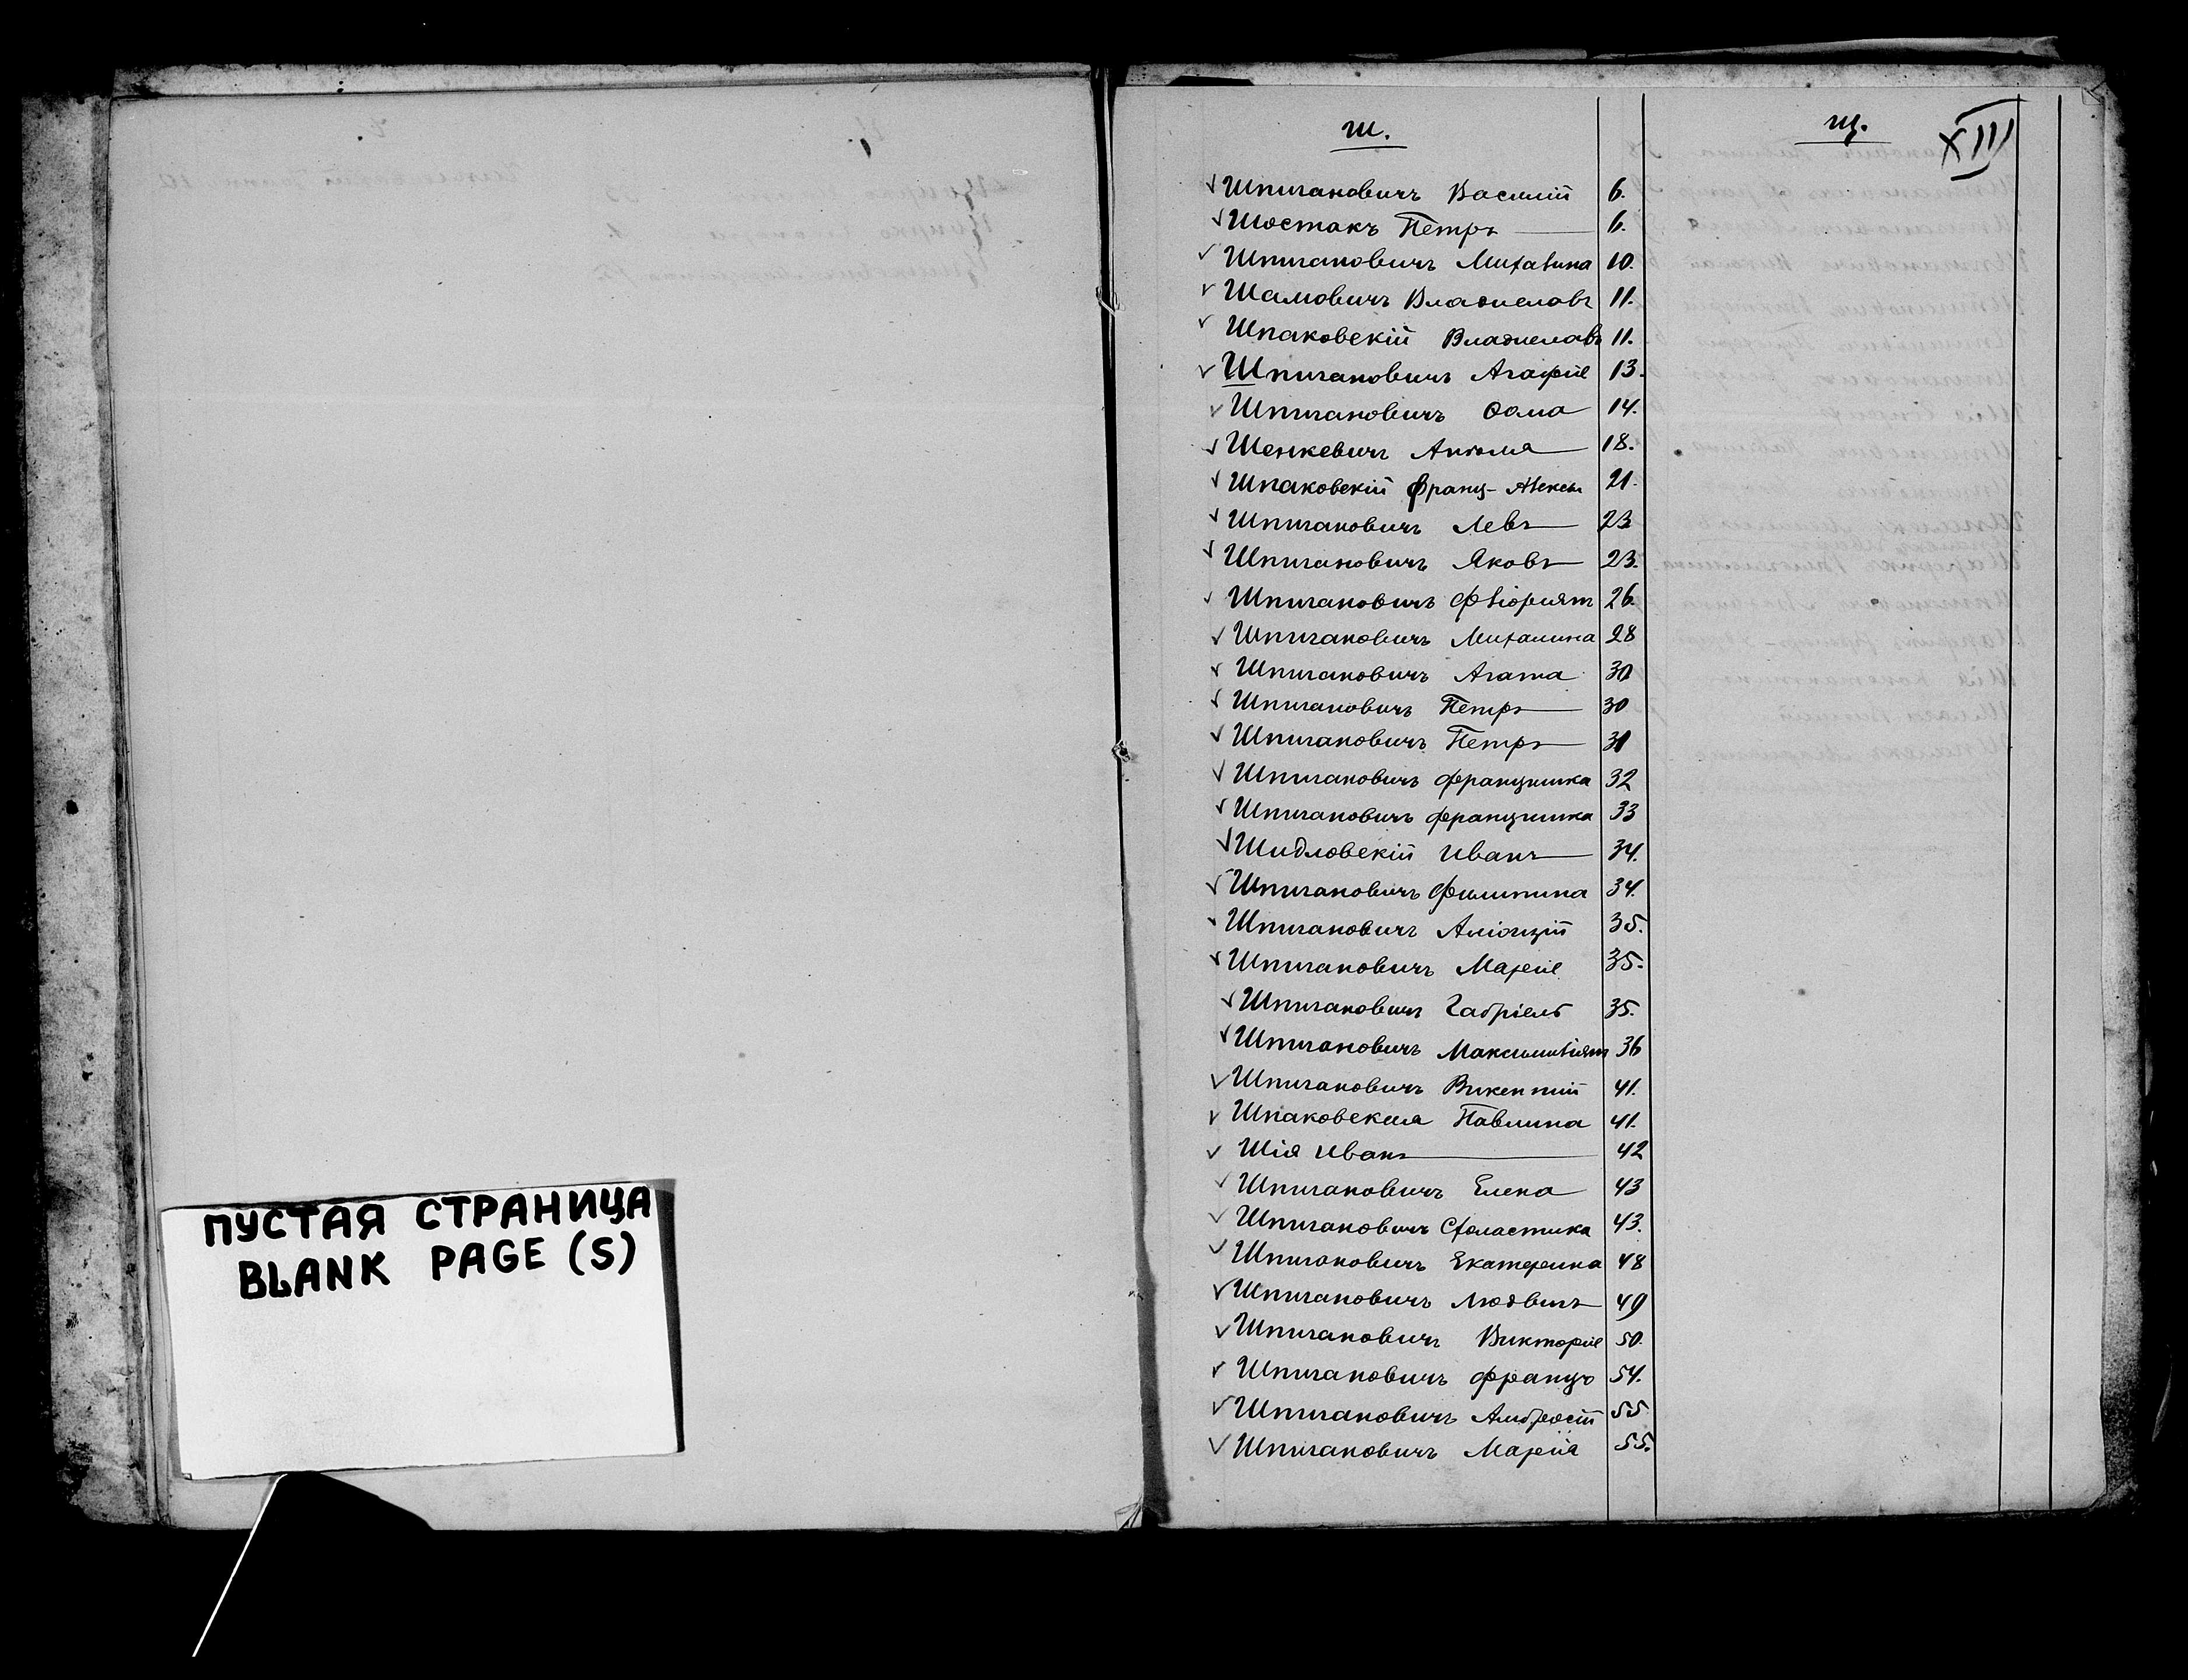 ПУСТАЯ СТРАНИЦА
BLANK PAGE (S)
Ш.
Шпигановичъ Василій 6.
Шостакъ Петръ 6.
Шпигановичъ Михалина 10.
Шамовичъ Владиславъ 11.
Шпаковскій Владиславъ 11.
Шпигановичъ Агафія 13.
Шпигановичъ Ѳома 14.
Шенкевичъ 18.
Шпаковскій Франц- 21.
Шпигановичъ Левъ 23
Шпигановичъ Яковъ 23.
Шпигановичъ Флоріянъ 26.
Шпигановичъ Михалина 28
Шпигановичъ Агата 30
Шпигановичъ Петръ 30
Шпигановичъ Петръ 31
Шпигановичъ Францишка 32
Шпигановичъ Францишка 33
Шидловскій Иванъ 34.
Шпигановичъ Филипина 34.
Шпигановичъ 35.
Шпигановичъ Марія 35.
Шпигановичъ Габріель 35.
Шпигановичъ Максимиліянъ 36
Шпигановичъ Викентій 41.
Шпаковская Павлина 41.
Шія Иванъ 42
Шпигановичъ Елена 43
Шпигановичъ Схоластика 43.
Шпигановичъ Екатерина 48
Шпигановичъ Людвигъ 49
Шпигановичъ Викторія 50.
Шпигановичъ Францъ 54.
Шпигановичъ Амбросій 55
Шпигановичъ Марія 55.
Щ.
XIII